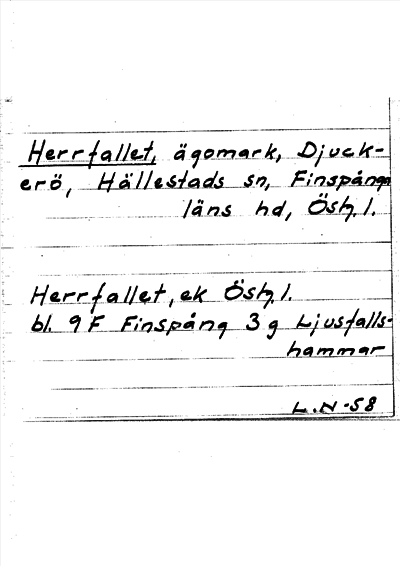 Herrfallet, ägomark, Djuck-
erö, Hällestads sn, Finspånga
läns hd, Östg. l.
Herrfallet, ek Östg. l.
bl. 9 F Finspång 3 g Ljusfalls-
hammar
L.N -58